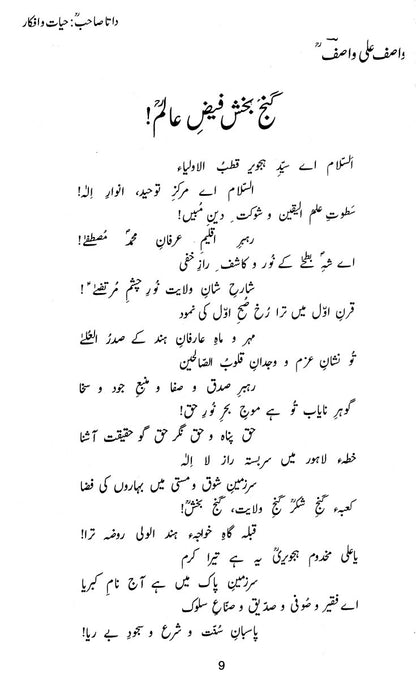 داتا صاحبؒ: حیات و افکار
واصف علی واصفؒ
گنج بخش فیضِ عالمؒ!
اَلسّلام اے سیّدِ ہجویر قطبُ الاولیاء
السّلام اے مرکزِ توحید، انوارِ الٰہ!
سَطوتِ علم الیقین و شوکتِ دینِ مُبیں!
رہبرِ اقلیمِ عرفانِ محمدؐ مصطفےٰ!
اے شہِ بطحےٰؐ کے نُور و کاشفِ رازِ خفی
شارحِ شانِ ولایت نُورِ چشمِ مُرتضےٰؑ!
قرنِ اوّل میں ترا رُخ صُبحِ اوّل کی نمود
مہر و ماہِ عارفانِ ہند کے صدرُ العُلےٰ
تُو نشانِ عزم و وجدانِ قلوبُ الصّالحین
رہبرِ صدق و صفا و منبعِ جود و سخا
گوہرِ نایاب تُو ہے موجِ بحرِ نُورِ حق!
حق پناہ و حق نگر حق گو حقیقت آشنا
خطۂ لاہور میں سربستہ رازِ لا اِلٰہ
سرزمینِ شوق و مستی میں بہاروں کی فضا
کعبۂ گنجِ شکرؒ گنجِ ولایت، گنج بخشؒ!
قبلہ گاہِ خواجۂ ہند الولی روضہ ترا!
یا علی مخدوم ہجویریؒ یہ ہے تیرا کرم
سرزمینِ پاک میں ہے آج نامِ کبریا
اے فقیر و صُوفی و صدّیق و صنّاعِ سلوک
پاسبانِ سُنّت و شرع و سجودِ بے ریا!
9